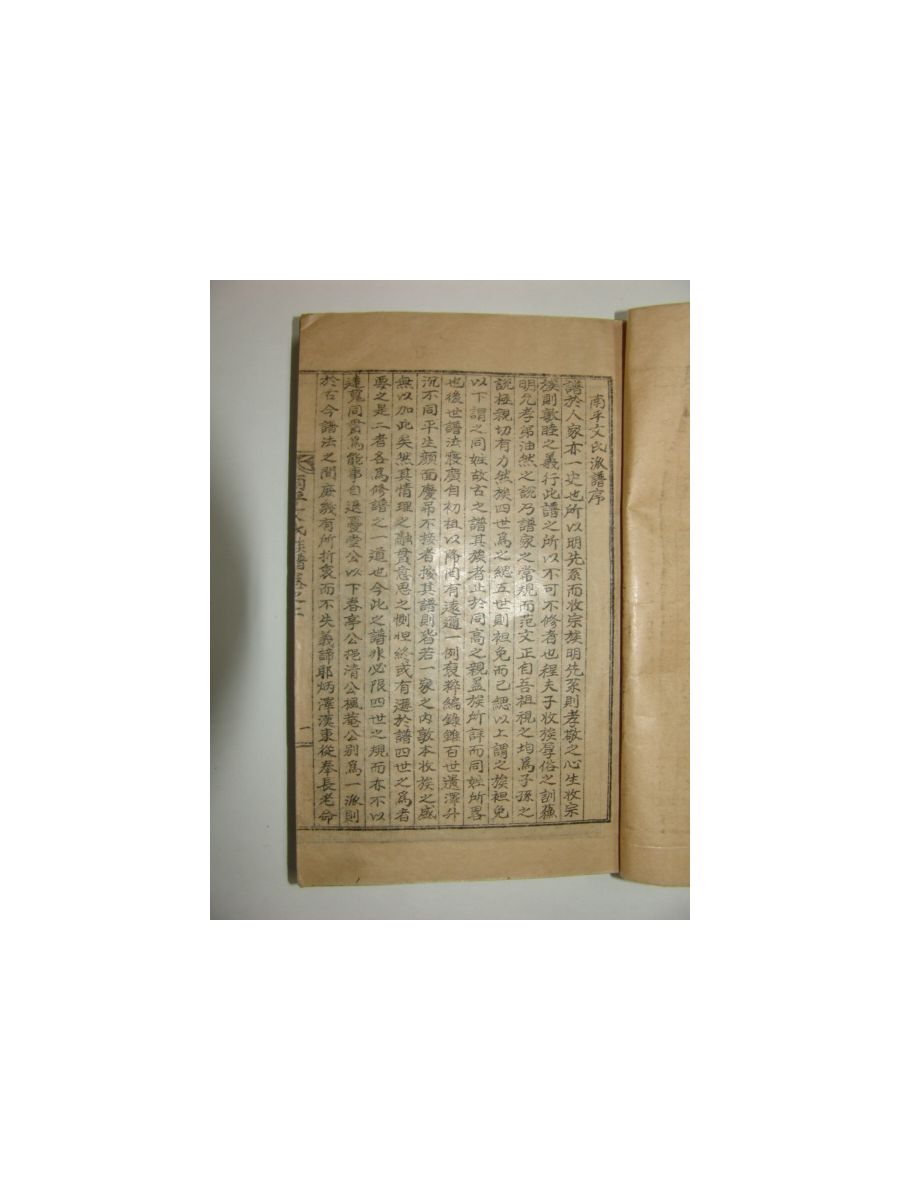 南平文氏派譜序
譜於人家亦一史也所以明先系而收宗族明先系則孝敬之心生收宗
族則敦睦之義行此譜之所以不可不修者也程夫子收族厚俗之訓蘇
明允孝弟油然之說乃譜家之常規而范文正自吾祖視之均爲子孫之
說極親切有力然族四世爲之緦五世則袒免而已緦以上謂之族袒免
以下謂之同姓故古之譜其族者止於同高之親盖族所詳而同姓所畧
也後世譜法寖廣自初祖以降罔有遠邇一例裒稡編錄雖百世遺澤升
沉不同平生顔面慶吊不接者按其譜則皆若一家之內敦本收族之盛
無以加此矣然其情理之融貫意思之惻怛終或有遜於譜四世之爲者
要之是二者各爲修譜之一道也今此之譜非必限四世之規而亦不以
遠蒐同貫爲能事自退憂堂公以下春亭公挹淸公楓菴公別爲一派則
於古今譜法之間庶幾有所折衷而不失義諦耶炳澤漢東從奉長老命
南平文氏族譜卷之一
一